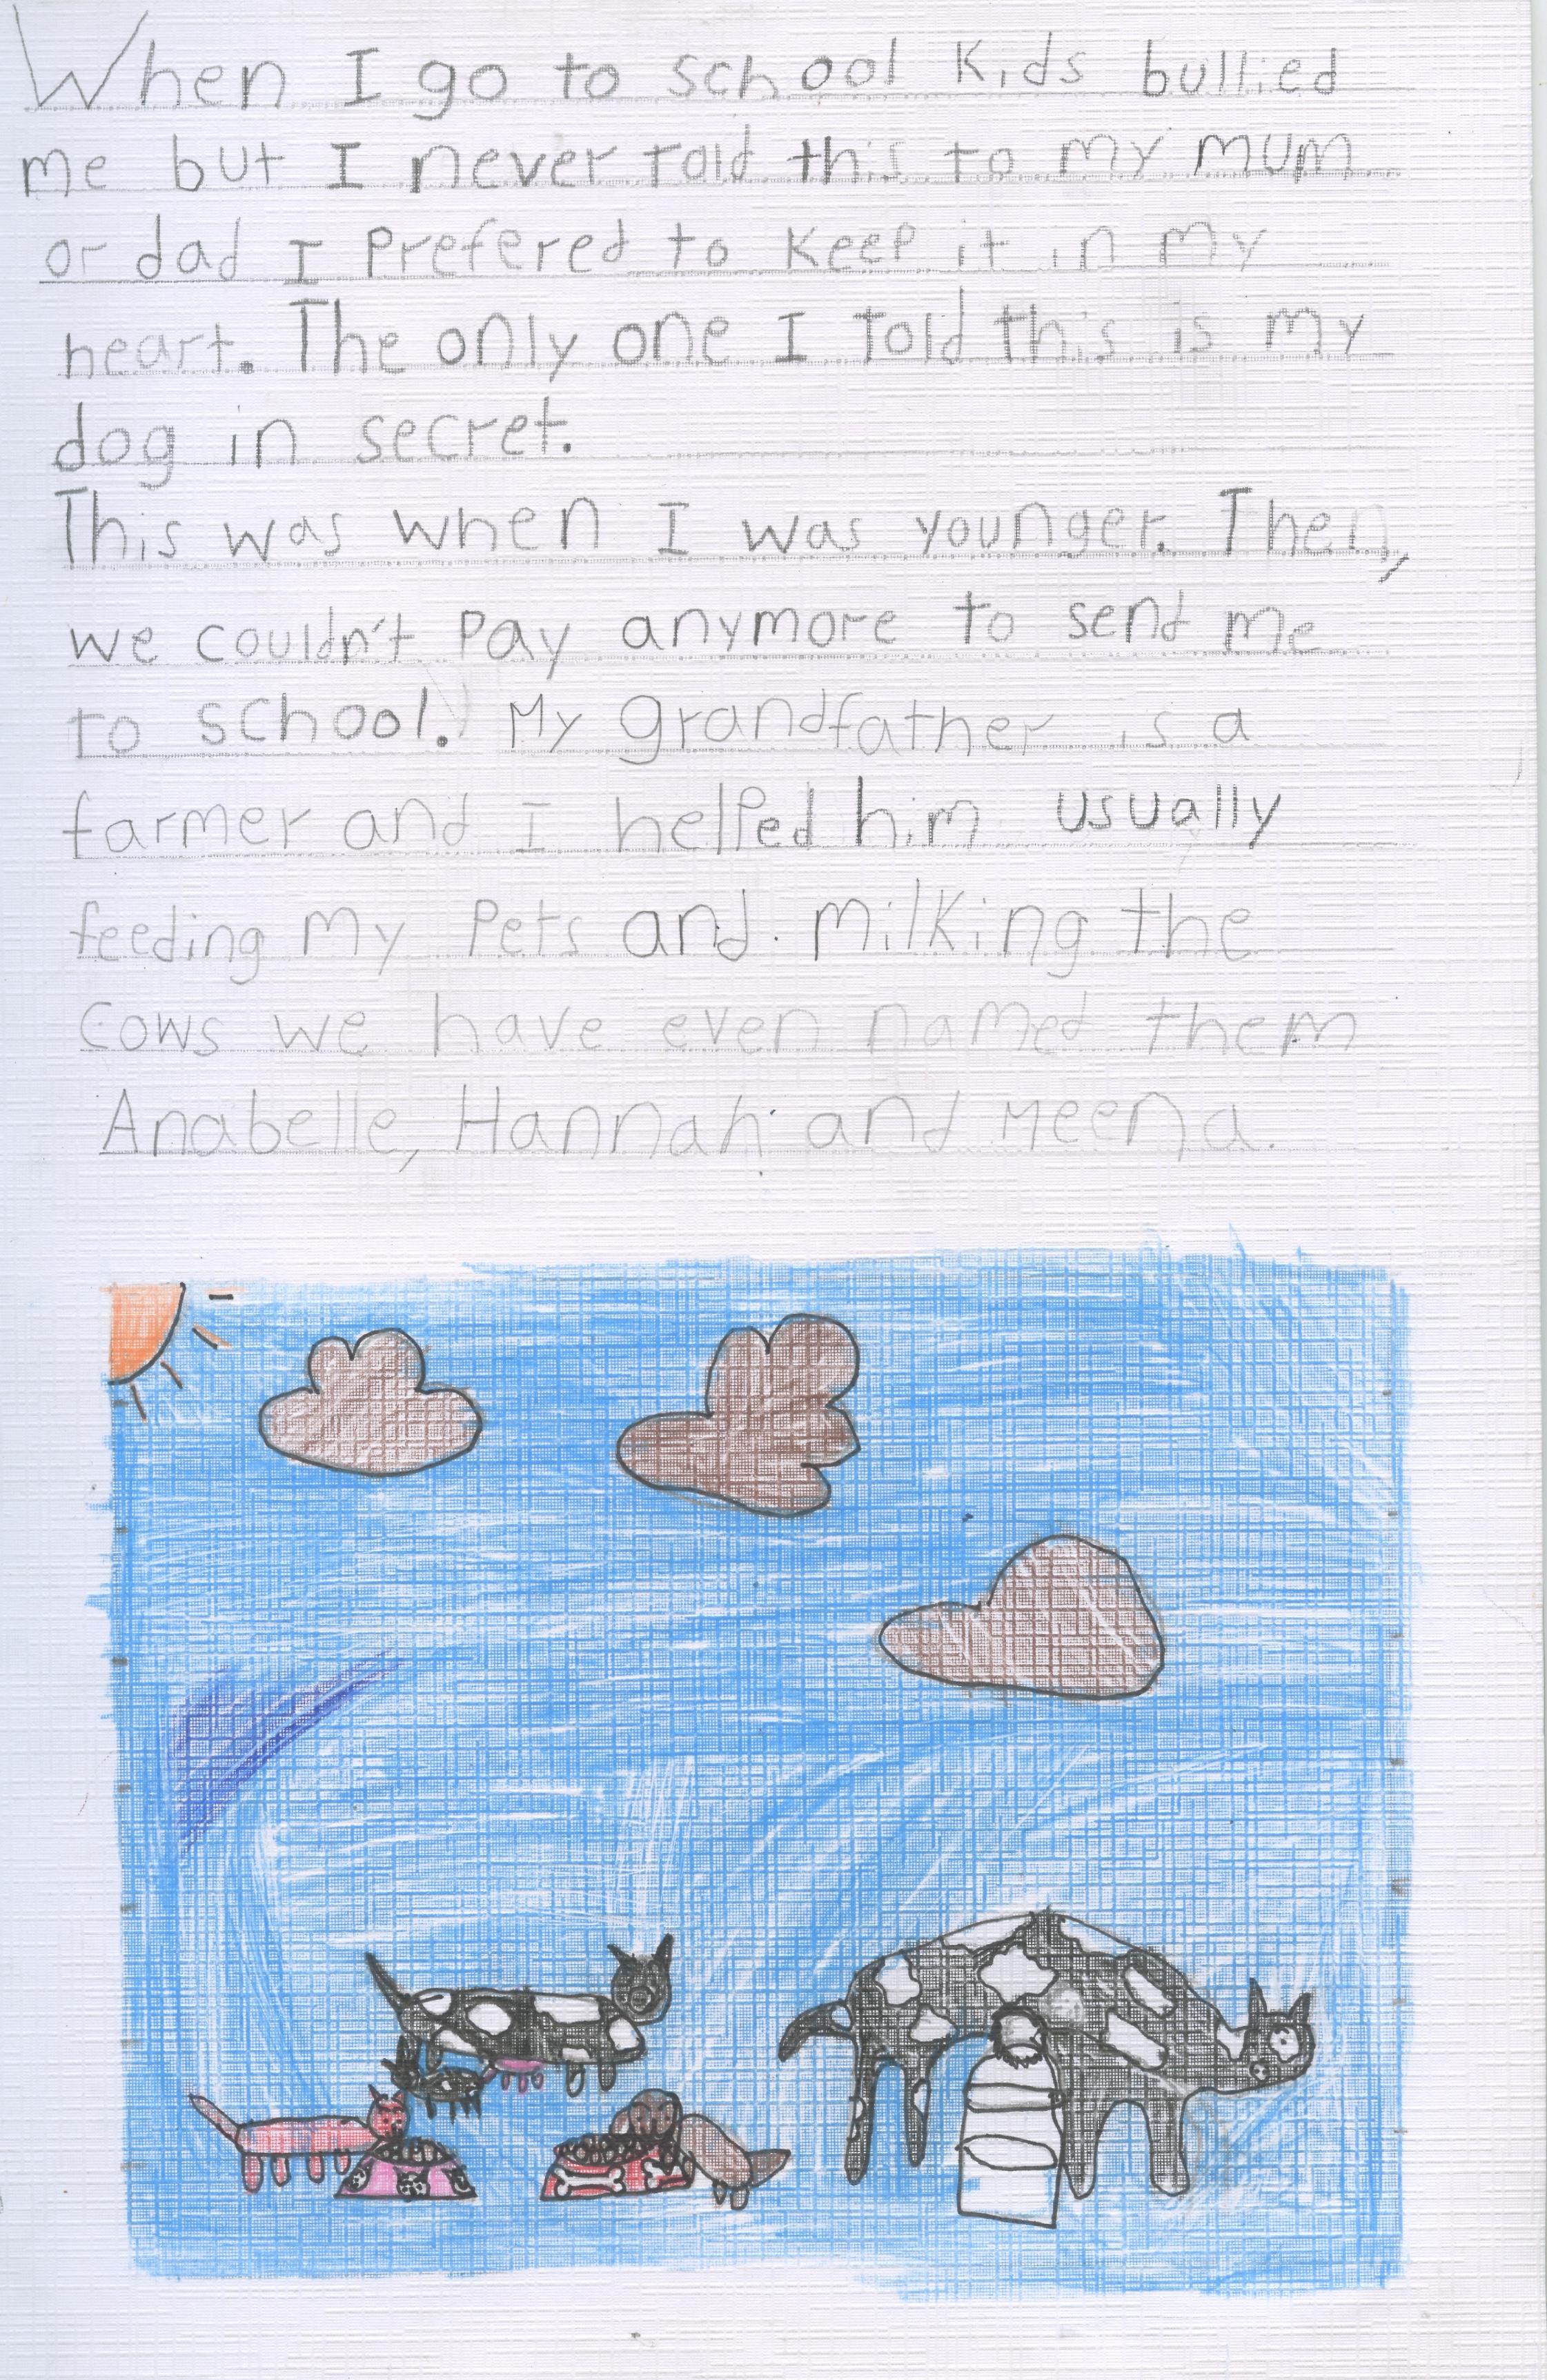 When I go to school kids bullied
me but I never told this to my mum
or dad I prefered to keep it in my
heart. The only one I told this is my
dog in secret.
This was when I was younger. Then,
we couldn't pay anymore to send me
to school. My grandfather is a
farmer and I helped him usually
feeding my pets and milking the
cows we have even named them
Anabelle, Hannah and Meena.